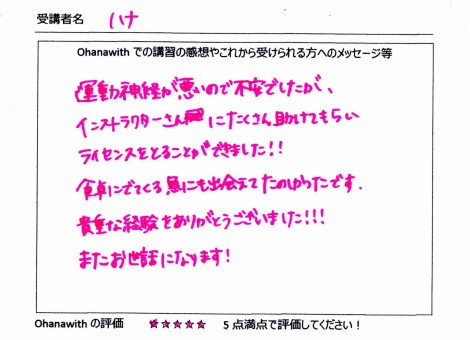 受講者名 ハナ
Ohanawith での講習の感想やこれから受けられる方へのメッセージ等
運動神経が悪いので不安でしたが、
インストラクターさんにたくさん助けてもらい
ライセンスをとることができました!!
食卓にでてくる魚にも出会えてたのしかったです.
貴重な経験をありがとうございました!!!
またお世話になります!
Ohanawith の評価 ★★★★★ 5 点満点で評価してください!